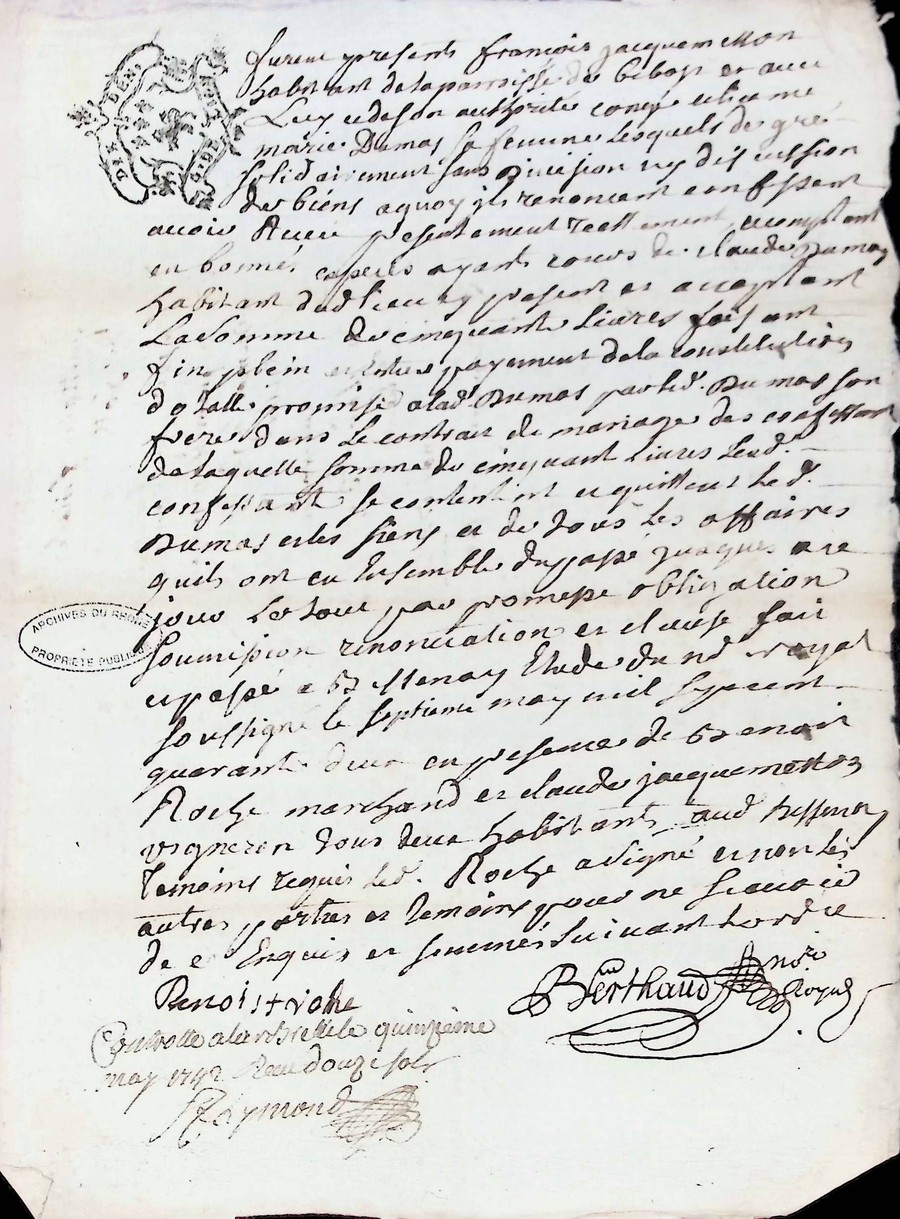 DIX DEN.
G. DE
furent presents francois jacquemetton
habitant de la parroisse de bibost et avec
Luy et de son authorité
marie Dumas sa femme Lesquels de gré
solidairement sans division ny discussion
de biens a quoy ils renoncent confessent
avoir Receu presentement reellement comptant
en bonnes especes ayants cours de claude Dumas
habitant dud lieu icy present et acceptant
La somme de cinquante Livres faisant
fin plein entier payement de la constitution
dotalle promise a lad. Dumas par led. Dumas son
frere dans Le contrat de mariage des confessant
de laquelle somme de cinquant Livres Lesd.
confessants se contentent et quittent led.
Dumas et les siens et de tous les affaires
quils ont eu Ensemble du passé jusques a ce
jour Le tout par promesse obligation
soumission renonciation et clause fait
et passé a Bessenay Etude du no.re royal
soussigné le septieme may mil sept cent
quarante deux en presence de Benoit
Roche marchand et claude jacquemetton
vigneron tous deux habitants aud Bessenay
temoins requis led. Roche a signé et non les
autres parties et temoins pour ne scavoir
de ce Enquis et sommés suivant Lordre
ARCHIVES DU RHÔNE
PROPRIÉTÉ PUBLIQUE
Benoist roche
Berthaud no.re Royal
Controllé a larbresle le quinzieme
may 1742 Receu douze sols
Raymond